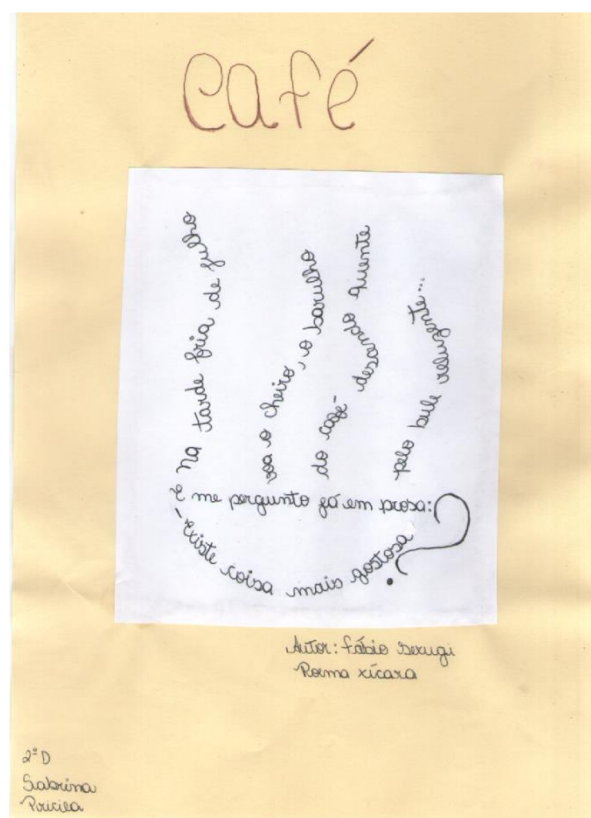 Café
Na tarde fria de julho
voa o cheiro, o barulho
do café - descendo quente
pelo bule reluzente...
E me pergunto já em prosa:
- Existe coisa mais gostosa?
Autor: Fábio Sexugi
Poema xícara
2º D
Sabrina
Pricila